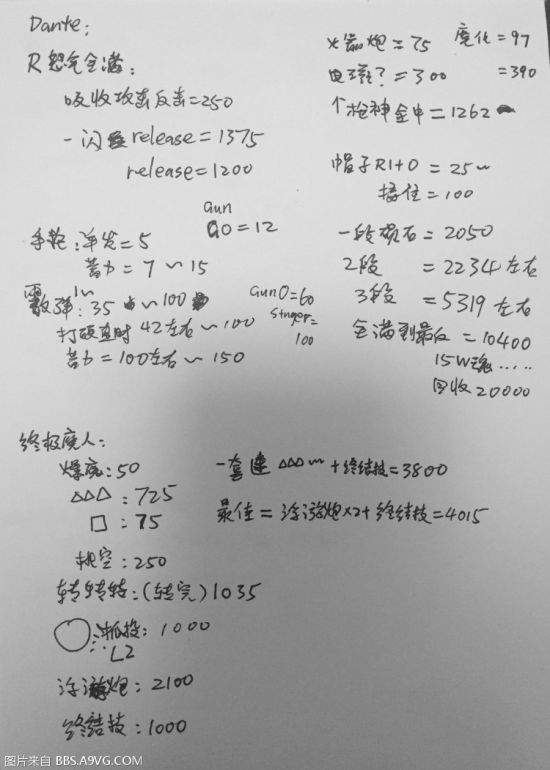 Dante:
R怒气全满:
吸收攻击反击=250
一闪 release=1375
release=1200
手枪:单发=5
蓄力=7~15
Gun
GO=12
霰弹:35~100
打硬直时42左右~100
蓄力=100左右~150
GunO=60
Stinger=
100
火箭炮=75 魔化=97
电磁?=300 =390
个枪神全中=1262
帽子R1+O=25~
接住=100
一段陨石=2050
2段=2234左右
3段=5319左右
全满到最后=10400
15W魂……
回收20000
终极魔人:
爆魔:50
△△△:725
□:75
挑空:250
转转转:(转完)1035
○:抓投:1000
L2
浮游炮:2100
终结技:1000
一套连△△△~+终结技=3800
最佳=浮游炮×2+终结技=4015
图片来自 BBS.A9VG.COM